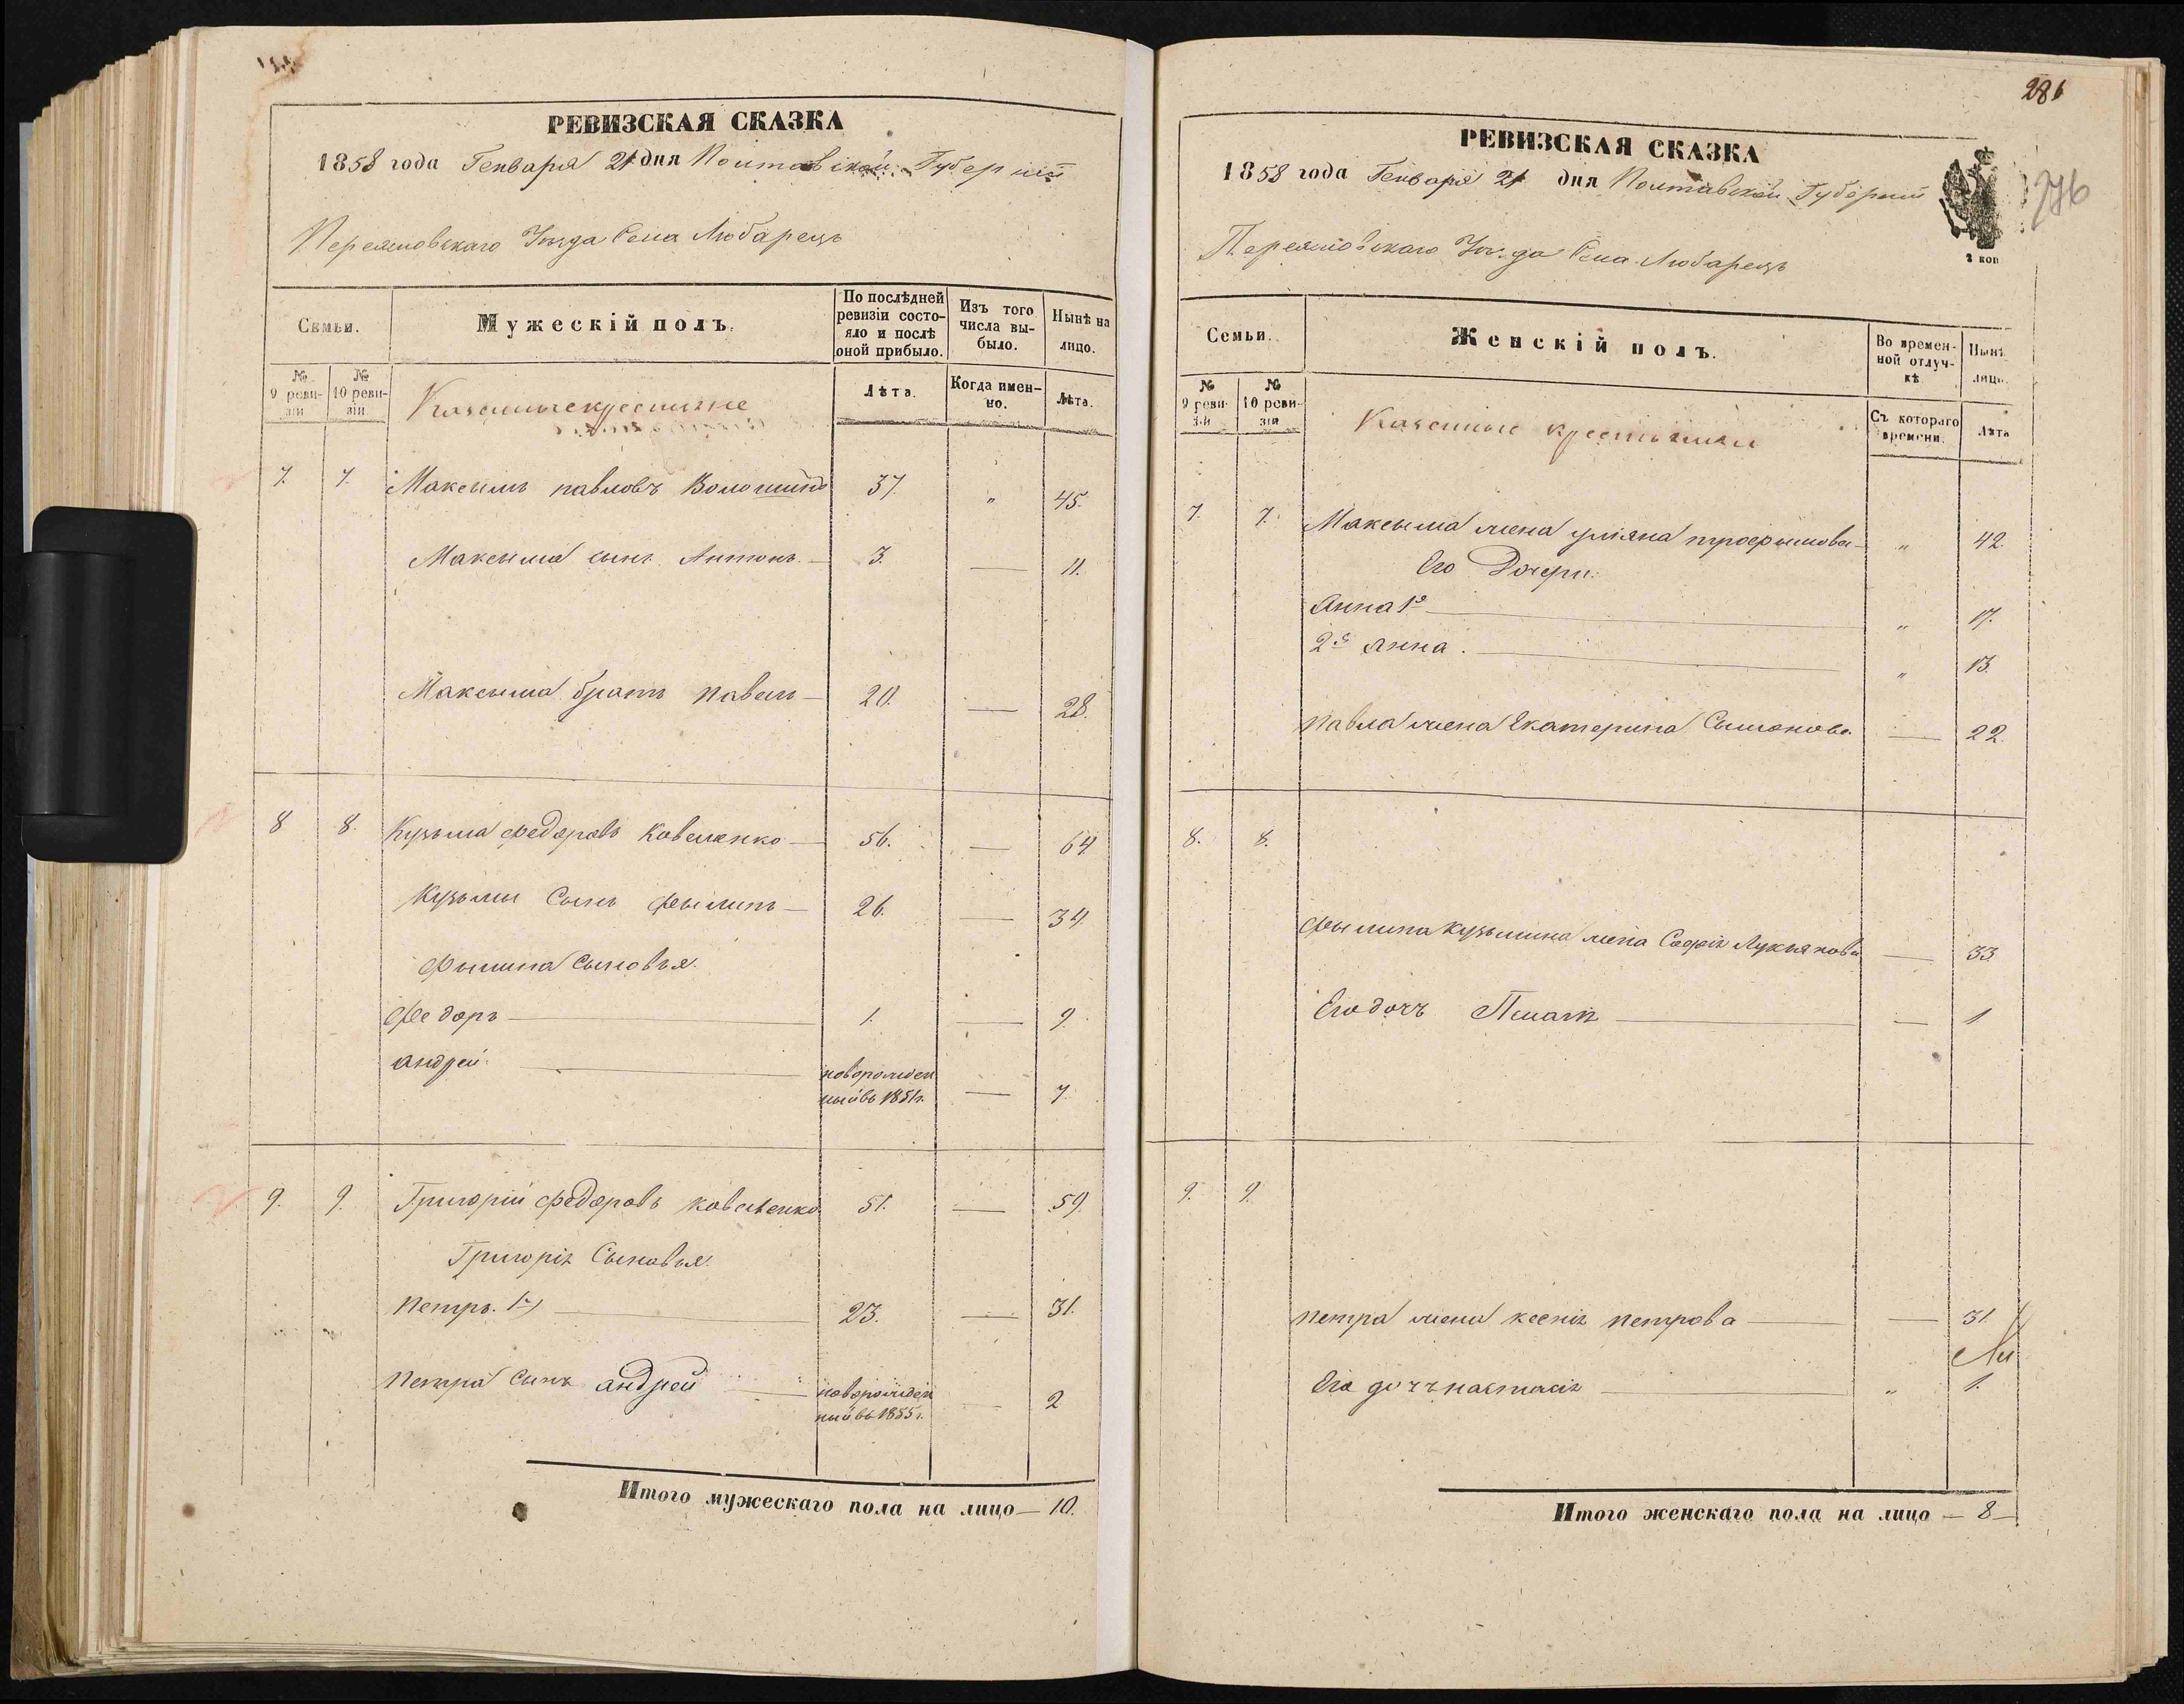 РЕВИЗСКАЯ СКАЗКА
1858 года Генваря 21 дня Полтавской Губерніи
Переяславскаго Уезда Села Любарець
Семьи.
Мужескій полъ.
По послѣдней ревизіи состояло и послѣ оной прибыло.
Изъ того числа выбыло.
Нынѣ на лицо.
№ 9 ревизіи
№ 10 ревизіи
Казенные крестьяне
Лѣта.
Когда именно.
Лѣта.
7. 7. Максимъ павловъ Волошинъ 37. „ 45.
Максыма сынъ Антонъ. — 3. — 11.
Максыма братъ павелъ — 20. — 28.
8 8. Кузьма федоровъ Коваленко — 56. — 64
Кузьмы Сынъ фылипъ — 26. — 34
Филипа Сыновья.
Федоръ — 1. — 9.
андрей — новорожден
ный въ 1851г. — 7.
9. 9. Григорій федоровъ коваленко 51. — 59.
Григорія Сыновья.
петръ. 1й — 23. — 31.
петра Сынъ андрей — новорожден
ный въ 1855г. — 2
Итого мужескаго пола на лицо — 10.
286
276
РЕВИЗСКАЯ СКАЗКА
1858 года Генваря 21 дня Полтавской Губерніи
2 коп
Переяславскаго Уезда Села Любарець
Семьи.
Женскій полъ.
Во временной отлучкѣ
Нынѣ лицо.
№ 9 ревизіи
№ 10 ревизія
Казенные крестьянки
Съ котораго времени.
Лѣта
7. 7. Максыма жена уліяна трофымова — „ 42.
Его Дочери.
Анна 1я — „ 17.
2я Анна. — „ 13.
павла жена Екатерина Сымонова — 22.
8. 8.
Фылипа кузьмина жена Софія Лукьянова — 33
Его дочъ — 1
9. 9.
петра жена ксенія петрова — 31.
Его дочъ настасія — „ 1.
Итого женскаго пола на лицо — 8 —